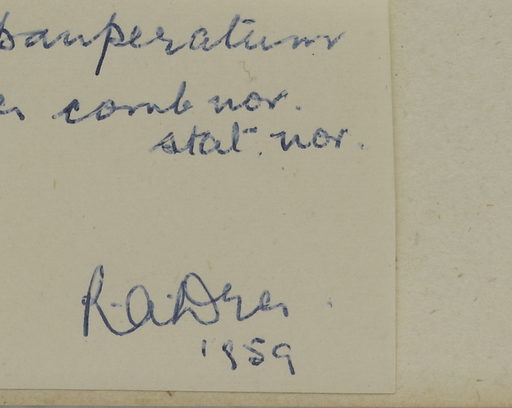 pauperatum
comb nov.
stat. nov.
R.A. Dyer
1959